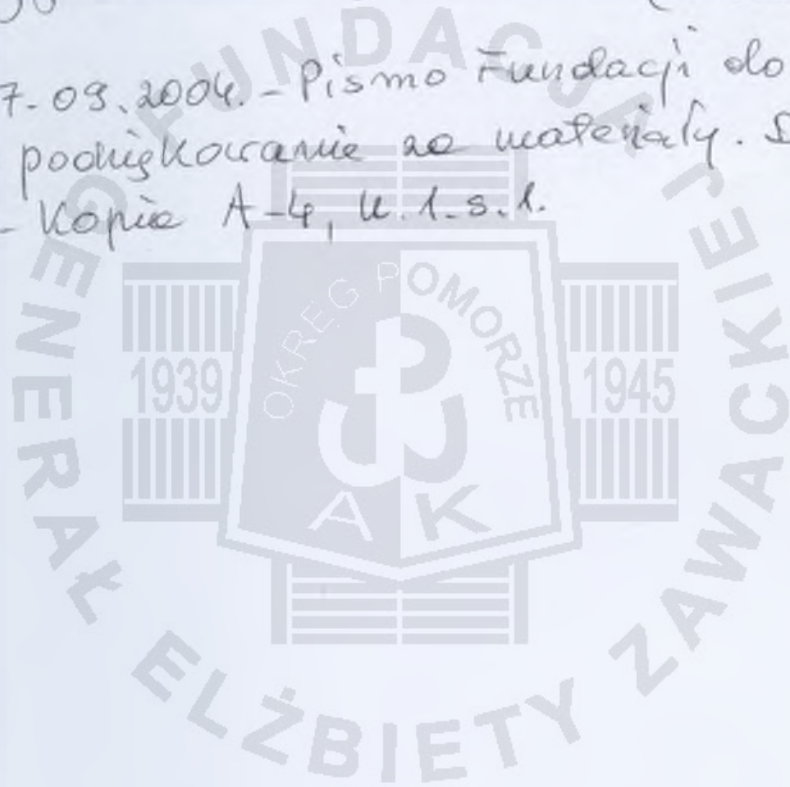 7-09.2004. - Pismo Fundacji do
podziękowanie za materiały.
- Kopia A-4, k.1.s.1.
FUNDACJA GENERAŁ ELŻBIETY ZAWACKIEJ
OKRĘG POMORZE
1939
1945
AK